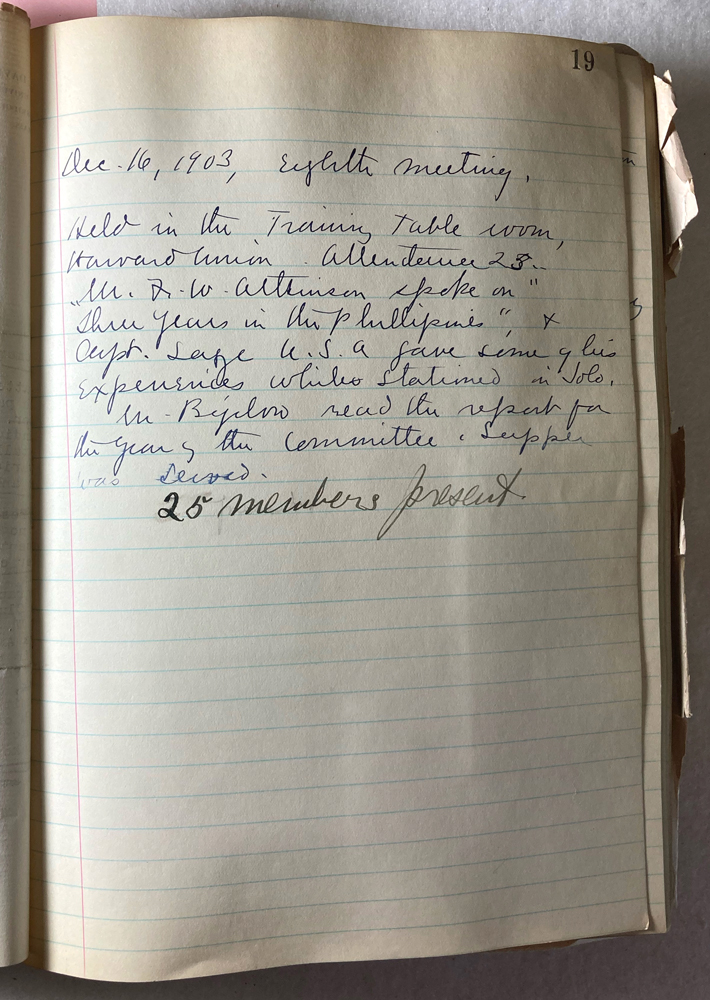 19
Dec. 16, 1903, Eighth meeting.
Held in the Training Table room,
Harvard Union. Attendance 23.
Mr. F. W. Atkinson spoke on "
Three Years in the Phillipines", &
Capt. Sage U.S.A gave some of his
experiences while stationed in Jolo.
Mr. Bigelow read the report for
the Year of the Committee. Supper
was served.
25 members present.